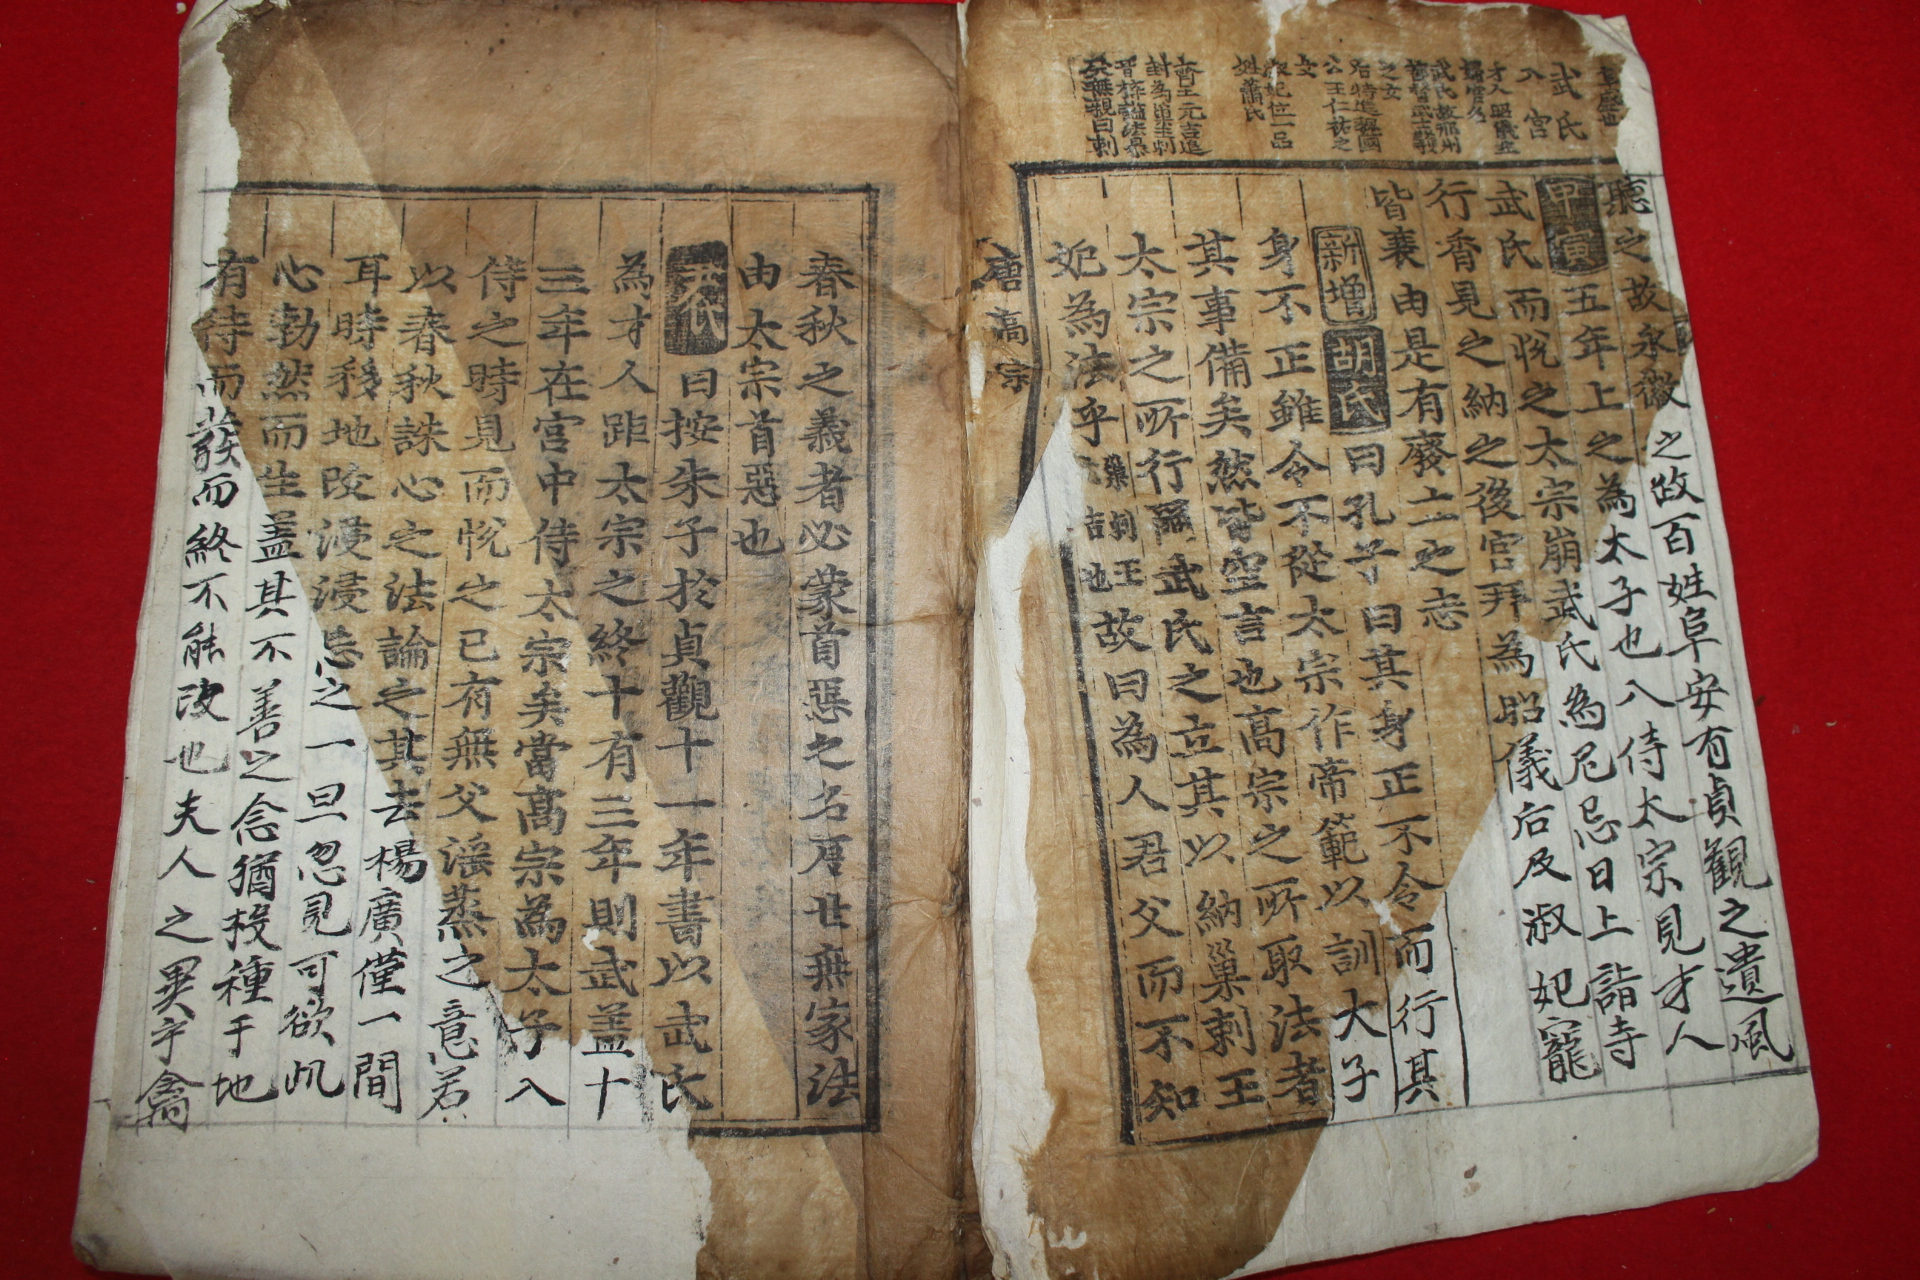 武氏
入宮
才人昭儀並
淑妃位一品
姓蕭氏
齊王元吉追
聽之故永徽之政百姓阜安有貞觀之遺風
甲寅五年上之為太子也入侍太宗見才人
武氏而悅之太宗崩武氏為尼忌日上詣寺
行香見之納之後宮拜為昭儀后及淑妃寵
皆衰由是有廢立之志
新增胡氏曰孔子曰其身正不令而行其
身不正雖令不從太宗作帝範以訓太子
其事備矣然皆空言也高宗之所取法者
太宗之所行爾武氏之立其以納巢剌王
妃為法乎巢剌王吉也故曰為人君父而不知
唐高宗
春秋之義者必蒙首惡之名唐世無家法
由太宗首惡也
曰按朱子於貞觀十一年書以武氏
為才人距太宗之終十有三年則武盖十
三年在宮中侍太宗矣當高宗為太子入
侍之時見而悅之已有無父滛蒸之意若
以春秋誅心之法論之其去楊廣僅一間
耳時移地改浸浸忘之一旦忽見可欲凡
心勃然而生盖其不善之念猶投種于地
有待而發而終不能改也夫人之異乎禽